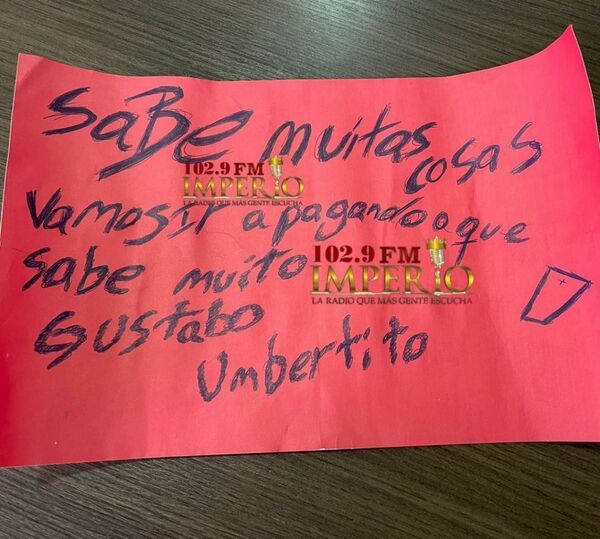 SaBe muitas cosas
102.9 FM
IMPERIO
LA RADIO QUE MÁS GENTE ESCUCHA
Vamosir apagando o que
102.9 FM
IMPERIO
LA RADIO QUE MÁS GENTE ESCUCHA
Sabe muito
Gustabo
Umbertito